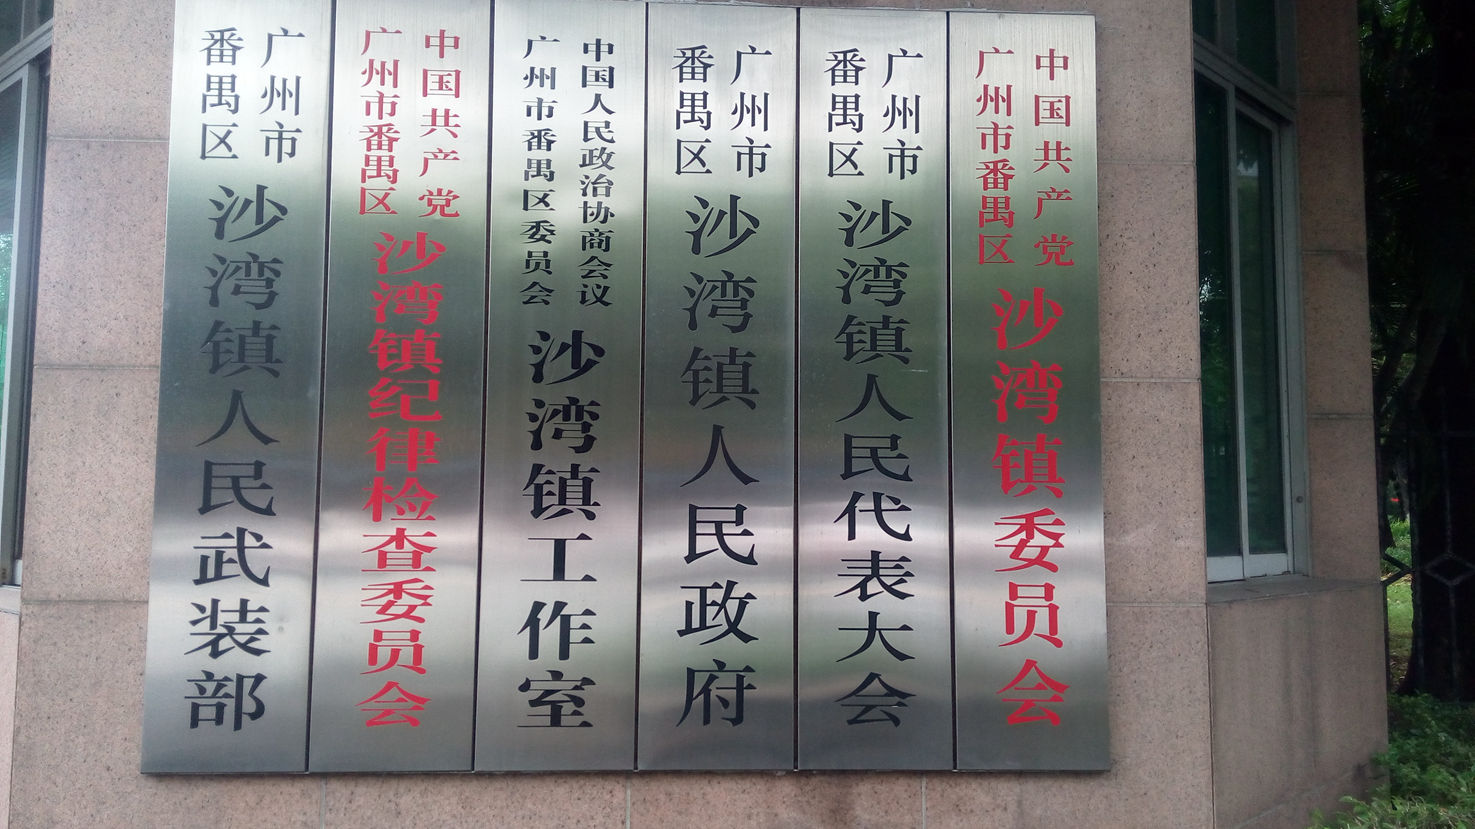 中国共产党
广州市番禺区
沙湾镇委员会
广州市
番禺区
沙湾镇人民代表大会
广州市
番禺区
沙湾镇人民政府
中国人民政治协商会议
广州市番禺区委员会
沙湾镇工作室
中国共产党
广州市番禺区
沙湾镇纪律检查委员会
广州市
番禺区
沙湾镇人民武装部